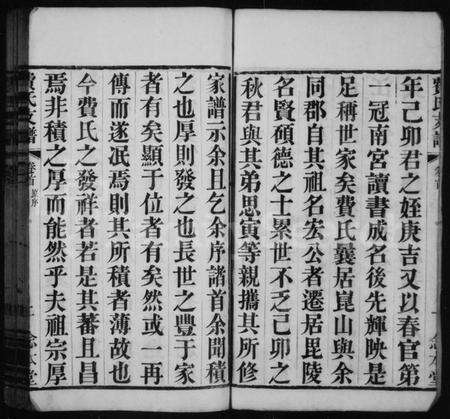 年己卯君之姪庚吉又以春官第
一冠南宮讀書成名後先輝映是
足稱世家矣費氏曩居崑山與余
同郡自其祖名宏公者遷居毘陵
名賢碩德之士累世不乏己卯之
秋君與其弟思寅等親攜其所修
家譜示余且乞余序諸首余聞積
之也厚則發之也長世之豐于家
者有矣顯于位者有矣然或一再
傳而遂泯焉則其所積者薄故也
今費氏之發祥者若是其蕃且昌
焉非積之厚而能然乎夫祖宗厚
費氏支譜
卷首
二
念本堂